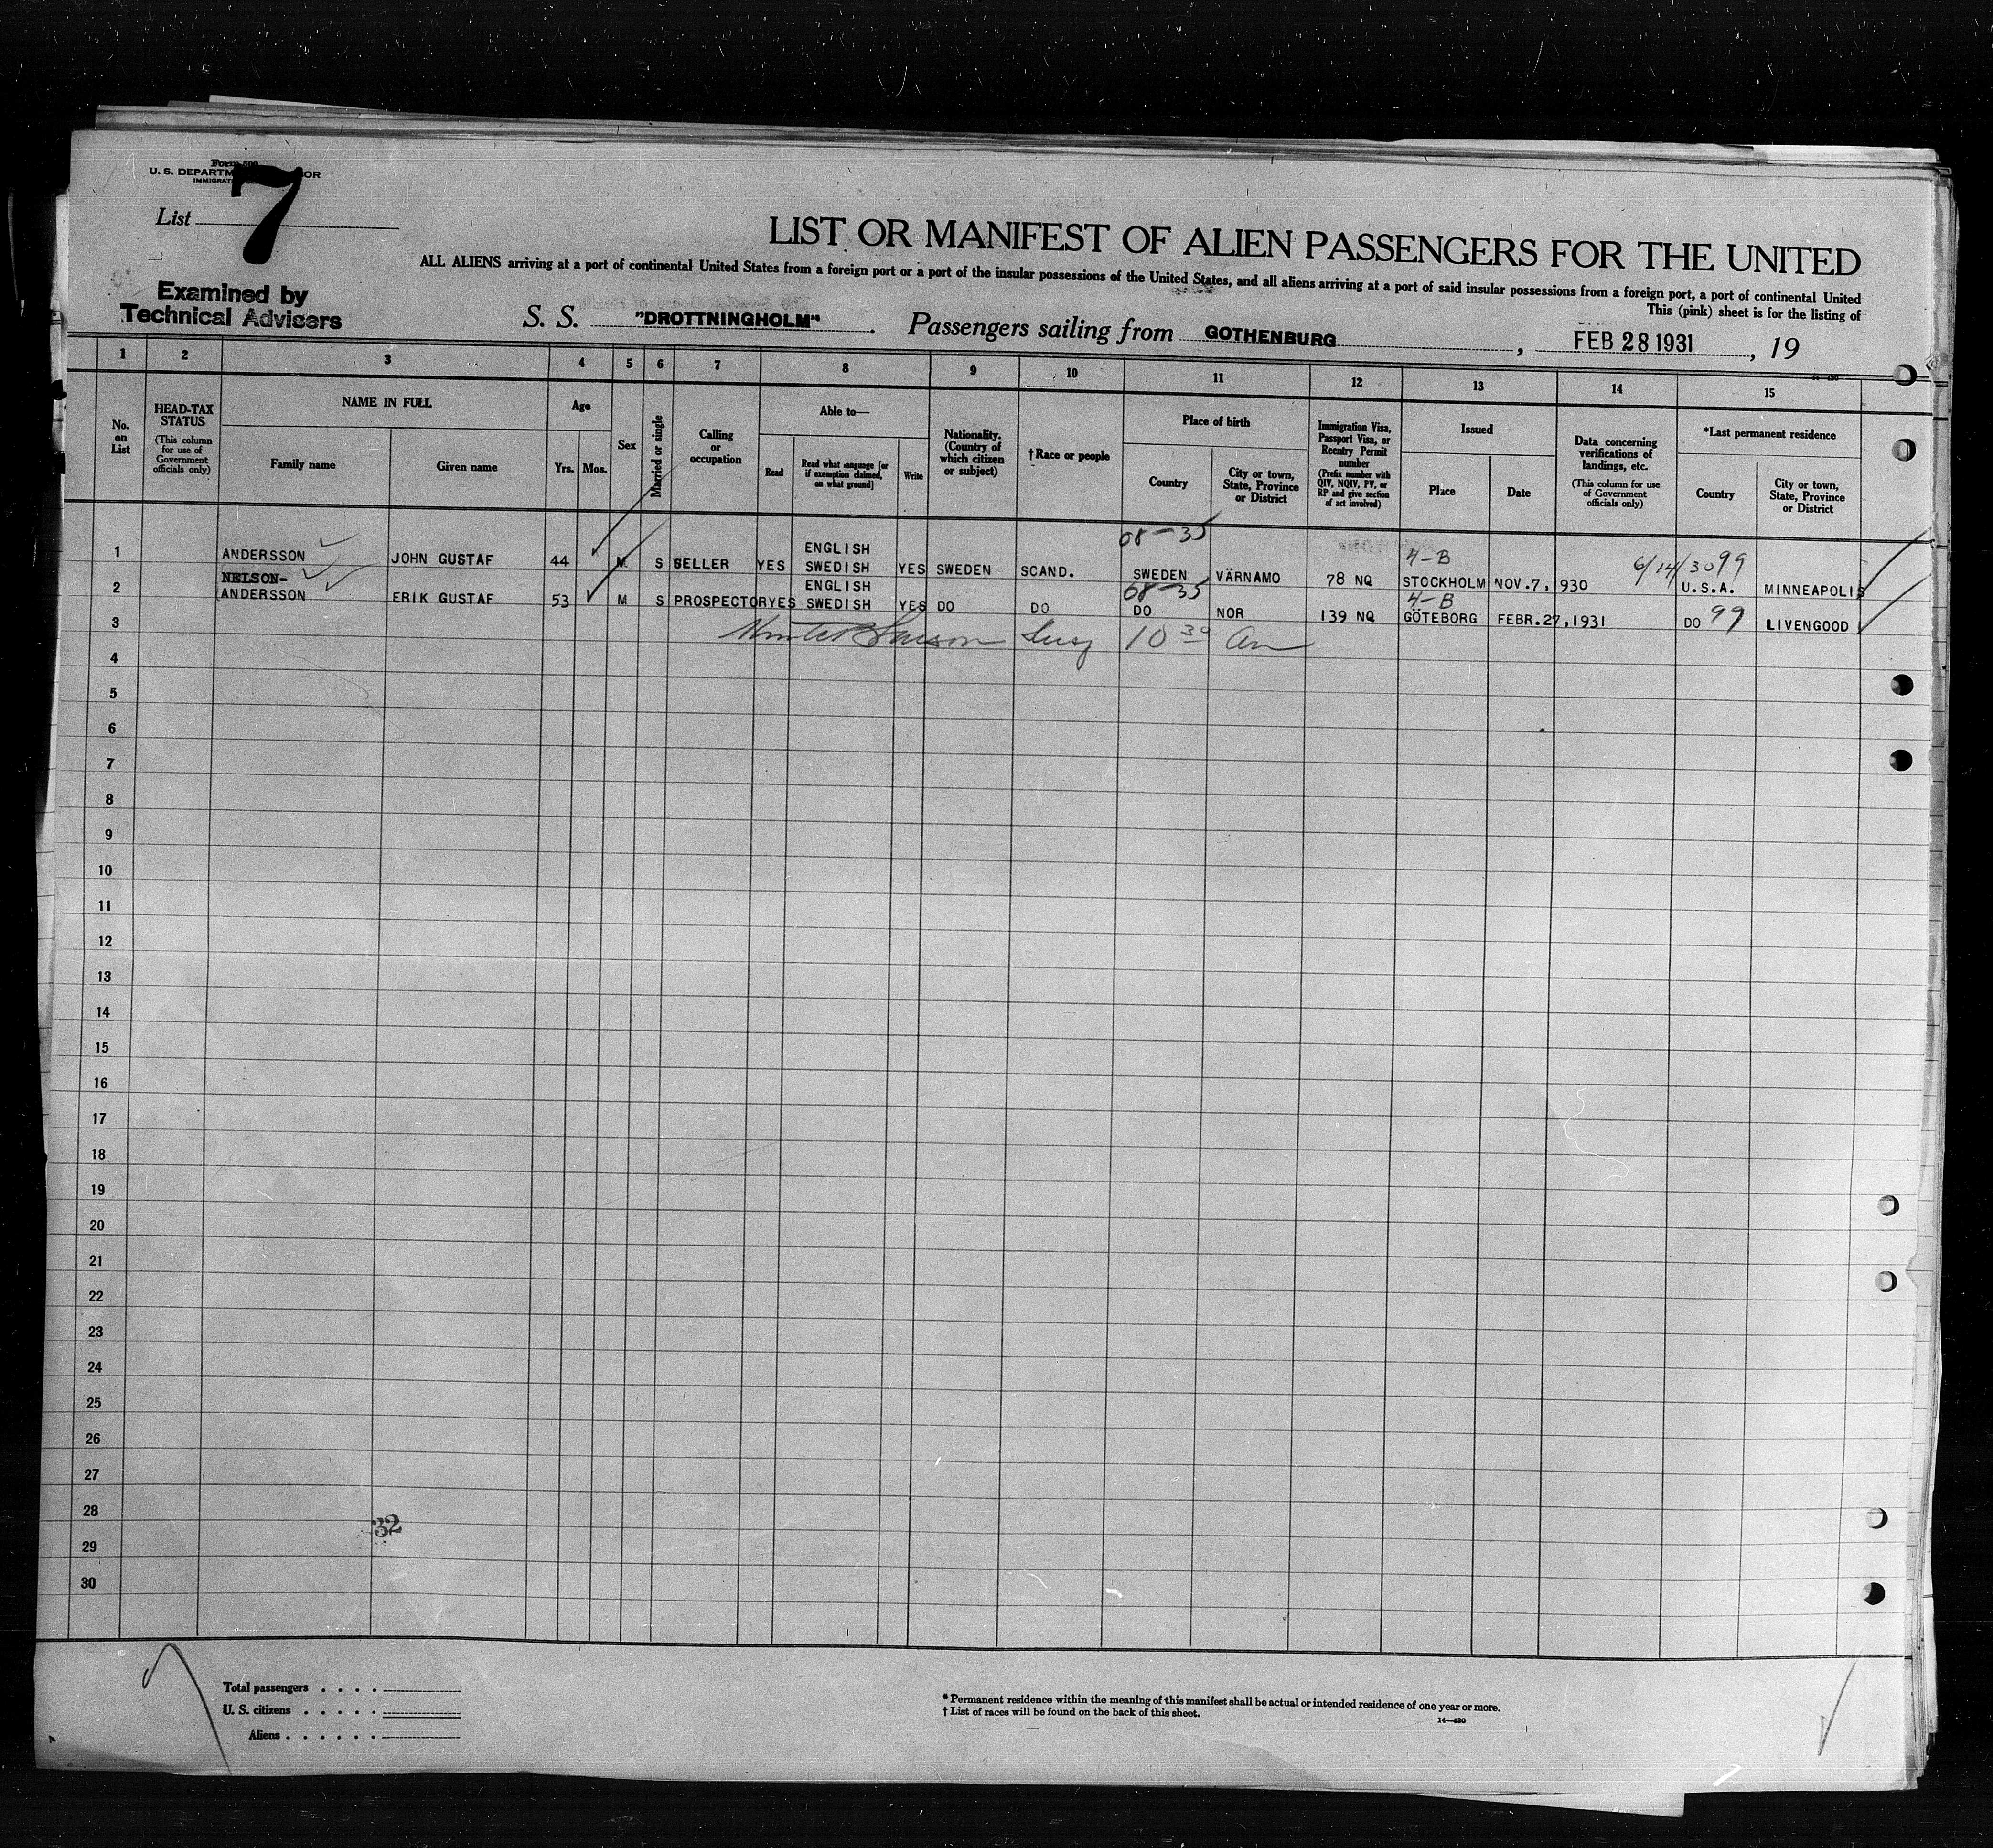 Form 500
U. S. DEPARTM OR
IMMIGRAT
List 7
LIST OR MANIFEST OF ALIEN PASSENGERS FOR THE UNITED
ALL ALIENS arriving at a port of continental United States from a foreign port or a port of the insular possessions of the United States, and all aliens arriving at a port of said insular possessions from a foreign port, a port of continental United
This (pink) sheet is for the listing of
Examined by
Technical Advisers
S. S. "DROTTNINGHOLM". Passengers sailing from GOTHENBURG, FEB 28 1931, 19
1 2 3 4 5 6 7 8 9 10 11 12 13 14 15
14-430
No. on List
HEAD-TAX STATUS
(This column for use of Government officials only)
NAME IN FULL
Family name Given name
Age
Yrs. Mos.
Sex
Married or single
Calling or occupation
Able to—
Read Read what language [or if exemption claimed, on what ground] Write
Nationality. (Country of which citizen or subject)
†Race or people
Place of birth
Country City or town, State, Province or District
Immigration Visa, Passport Visa, or Reentry Permit number
(Prefix number with QIV, NQIV, PV, or RP and give section of act involved)
Issued
Place Date
Data concerning verifications of landings, etc.
(This column for use of Government officials only)
*Last permanent residence
Country City or town, State, Province or District
08-35 4-B 6/14/30 99
1 ANDERSSON JOHN GUSTAF 44 M S SELLER YES ENGLISH SWEDISH YES SWEDEN SCAND. SWEDEN VÄRNAMO 78 NQ STOCKHOLM NOV.7,1930 U.S.A. MINNEAPOLIS
08-35 4-B
2 NELSON-ANDERSSON ERIK GUSTAF 53 M S PROSPECTOR YES ENGLISH SWEDISH YES DO DO DO NOR 139 NQ GÖTEBORG FEBR.27,1931 DO 99 LIVENGOOD
3 10 30 Am
4
5
6
7
8
9
10
11
12
13
14
15
16
17
18
19
20
21
22
23
24
25
26
27
28
32
29
30
Total passengers . . . .
U. S. citizens . . . . .
Aliens . . . . . .
* Permanent residence within the meaning of this manifest shall be actual or intended residence of one year or more.
† List of races will be found on the back of this sheet.
14—430